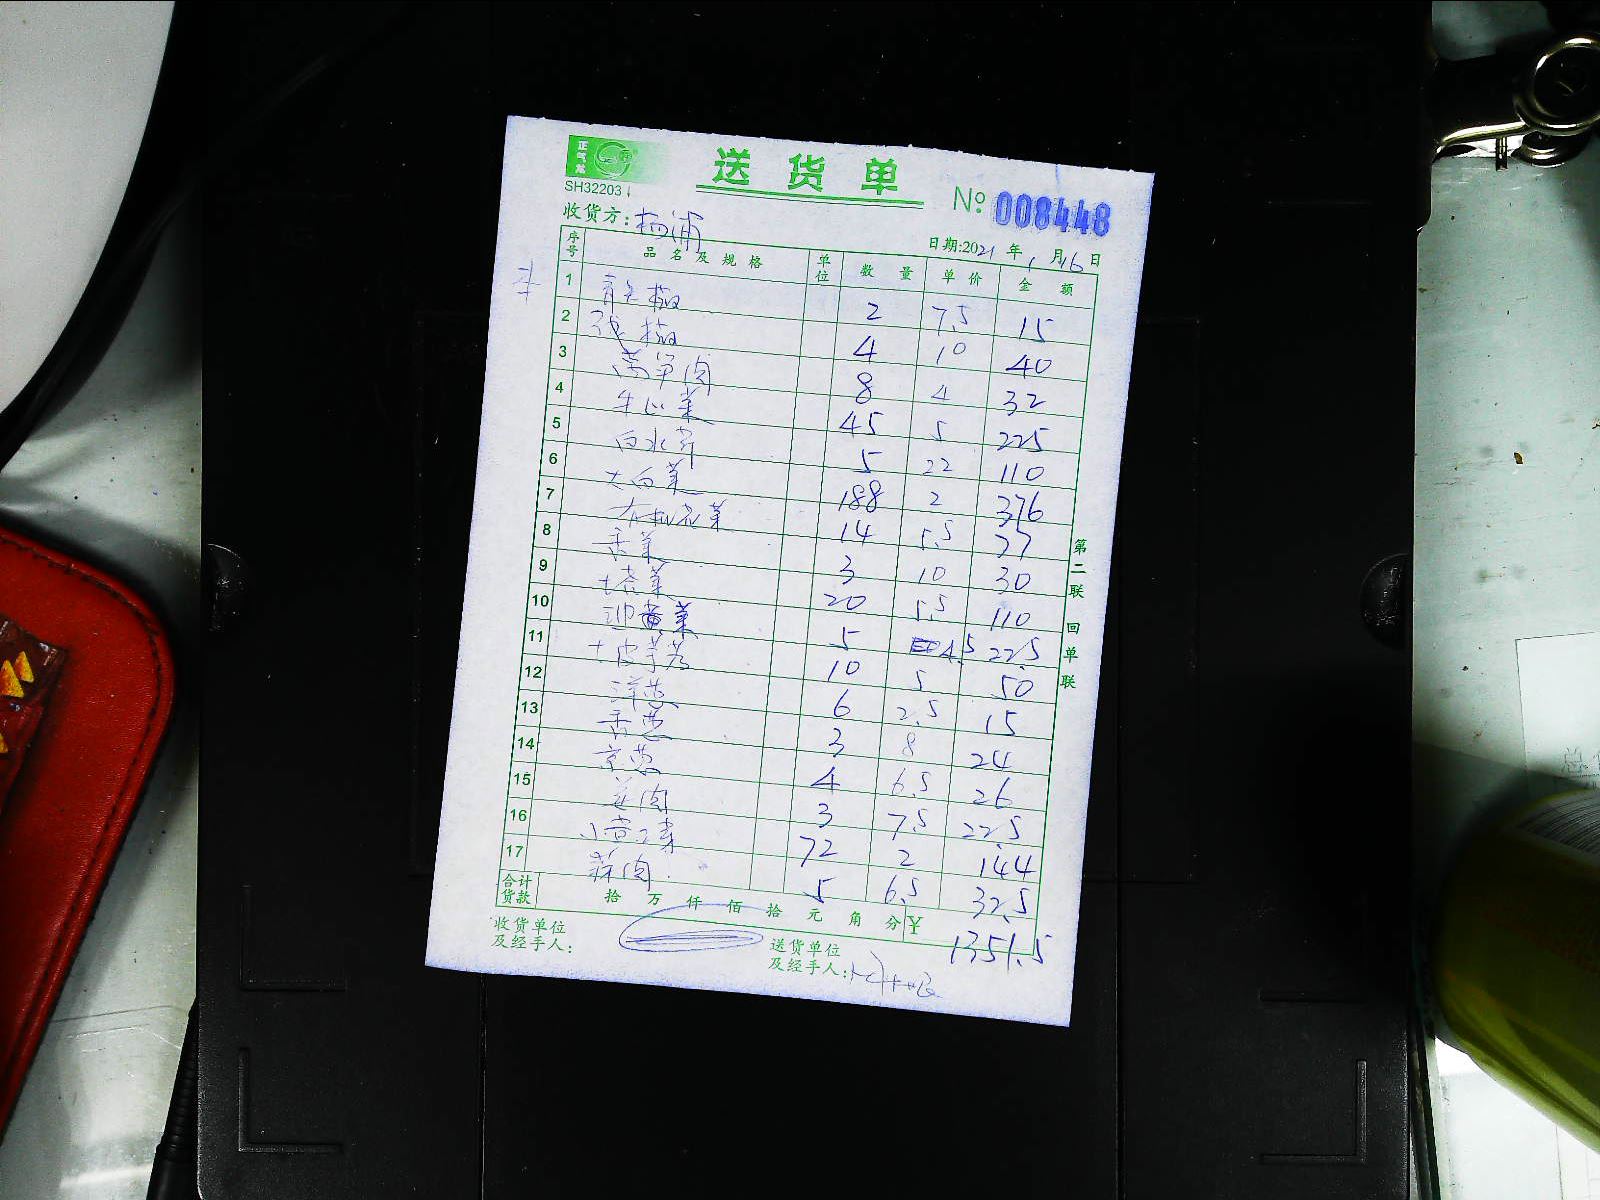 正气龙
送货单
SH32203
№ 008448
收货方: 杨浦
日期:2021年1月16日
序号 品名及规格 单位 数量 单价 金额
1 青尖椒 2 7.5 15
2 张椒 4 10 40
3 莴笋肉 8 4 32
4 牛心菜 45 5 225
5 白水芹 5 22 110
6 大白菜 188 2 376
7 有机花菜 14 5.5 77
8 香菜 3 10 30
9 塔菜 20 5.5 110
10 韭黄菜 5 4.5 22.5
11 去皮芋艿 10 5 50
12 洋葱 6 2.5 15
13 香葱 3 8 24
14 京葱 4 6.5 26
15 姜肉 3 7.5 22.5
16 小青菜 72 2 144
17 蒜肉 5 6.5 32.5
合计货款 拾 万 仟 佰 拾 元 角 分 ¥ 1351.5
收货单位及经手人:
送货单位及经手人:
第二联 回单联